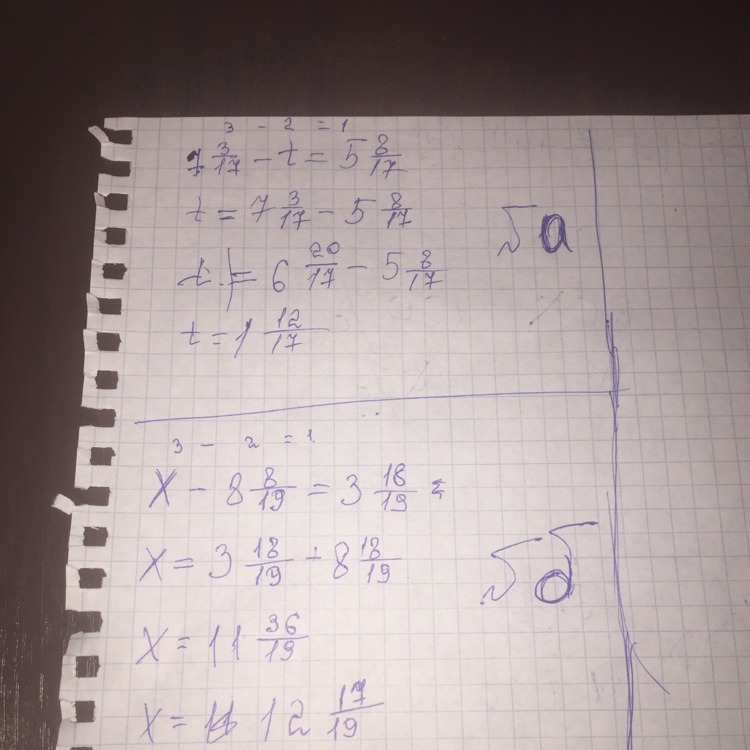 3 - 2 = 1
7 3/17 - t = 5 8/17
t = 7 3/17 - 5 8/17
5а
t = 6 20/17 - 5 8/17
t = 1 12/17
3 - 2 = 1
x - 8 8/19 = 3 18/19 =
x = 3 18/19 + 8 18/19
5б
x = 11 36/19
x = 12 17/19